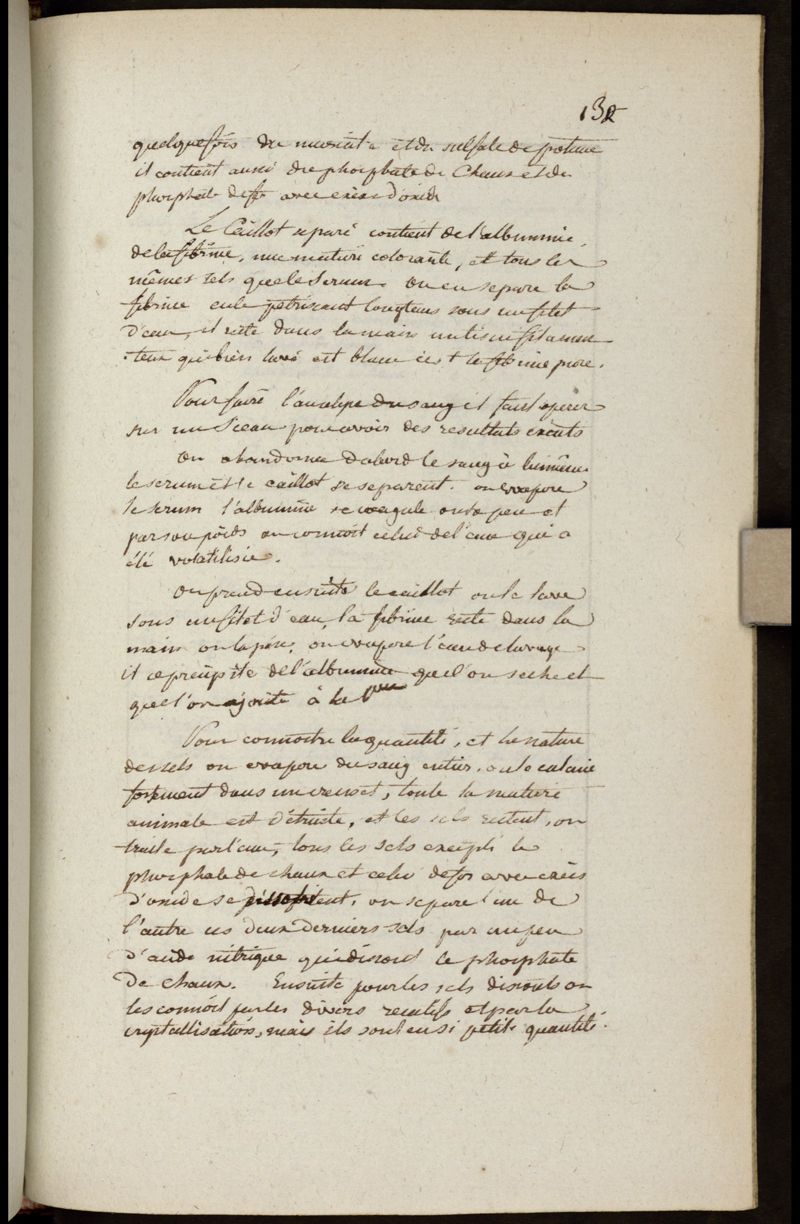 132
quelquefois du muriate et du sulfate de potasse
il contient aussi du phosphate de Chaux et du
phosphate de fer avec excès d'oxide
Le Caillot separé contient de l'albumine,
de la fibrine, une matiere colorante, et tous les
mêmes sels que le serum. on en separe la
fibrine en le petrissant longtems sous un filet
d'eau, il reste dans la main un tissu filamen
teux qui bien lavé est blanc c'est la fibrine pure.
Pour faire l'analyse du sang il faut operer
sur un Sceau pour avoir des resultats exacts
on abandonne d'abord le sang à lui même
le serum et le caillot se separent. on evapore
le serum l'albumine se coagule on la pese et
par son poids on connoit celui de l'eau qui a
été volatilisée.
on prend ensuite le caillot on le lave
sous un filet d'eau, la fibrine reste dans la
main on la pèse, on evapore l'eau de lavage
il se precipite de l'albumine que l'on seche et
que l'on ajoute à la 1ere
Pour connoitre la quantité, et la nature
des sels on evapore du sang entier, on le calcine
fortement dans un creuset, toute la matiere
animale est détruite, et les sels restent, on
traite par l'eau, tous les sels excepté le
phosphate de chaux et celui de fer avec excès
d'oxide se dissolvent, on separe l'un de
l'autre ces deux derniers sels par un peu
d'acide nitrique qui dissout le phosphate
De chaux. Ensuite pour les sels dissouts on
les connoit par les divers reactifs et par la
crystallisation, mais ils sont en si petite quantité